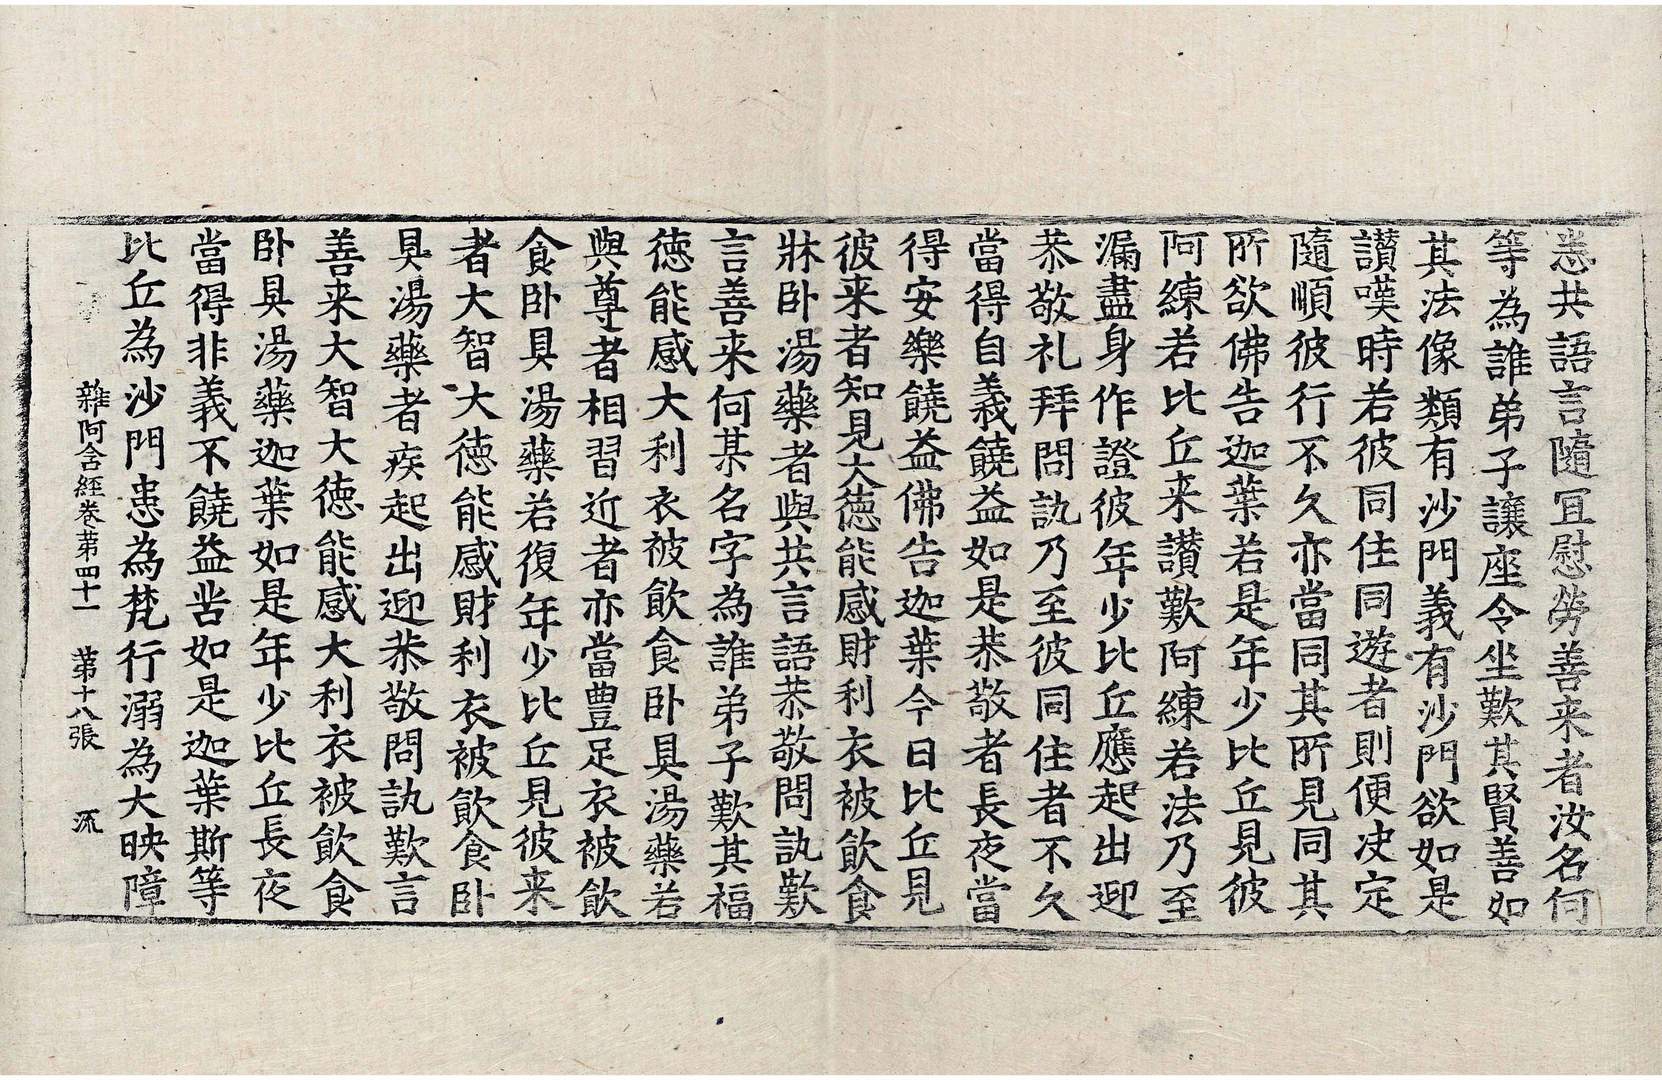 悉共語言隨冝慰勞善来者汝名何
等為誰弟子讓座令坐歎其賢善如
其法像類有沙門義有沙門欲如是
讃嘆時若彼同住同遊者則便決定
隨順彼行不久亦當同其所見同其
所欲佛告迦葉若是年少比丘見彼
阿練若比丘来讃歎阿練若法乃至
漏盡身作證彼年少比丘應起出迎
恭敬礼拜問訊乃至彼同住者不久
當得自義饒益如是恭敬者長夜當
得安樂饒益佛告迦葉今日比丘見
彼来者知見大德能感財利衣被飲食
牀卧湯藥者與共言語恭敬問訊歎
言善来何某名字為誰弟子歎其福
德能感大利衣被飲食卧具湯藥若
與尊者相習近者亦當豊足衣被飲
食卧具湯藥若復年少比丘見彼来
者大智大德能感財利衣被飲食卧
具湯藥者疾起出迎恭敬問訊歎言
善来大智大德能感大利衣被飲食
卧具湯藥迦葉如是年少比丘長夜
當得非義不饒益苦如是迦葉斯等
比丘為沙門患為梵行溺為大映障
雜阿含經卷苐四十一 苐十八張 流